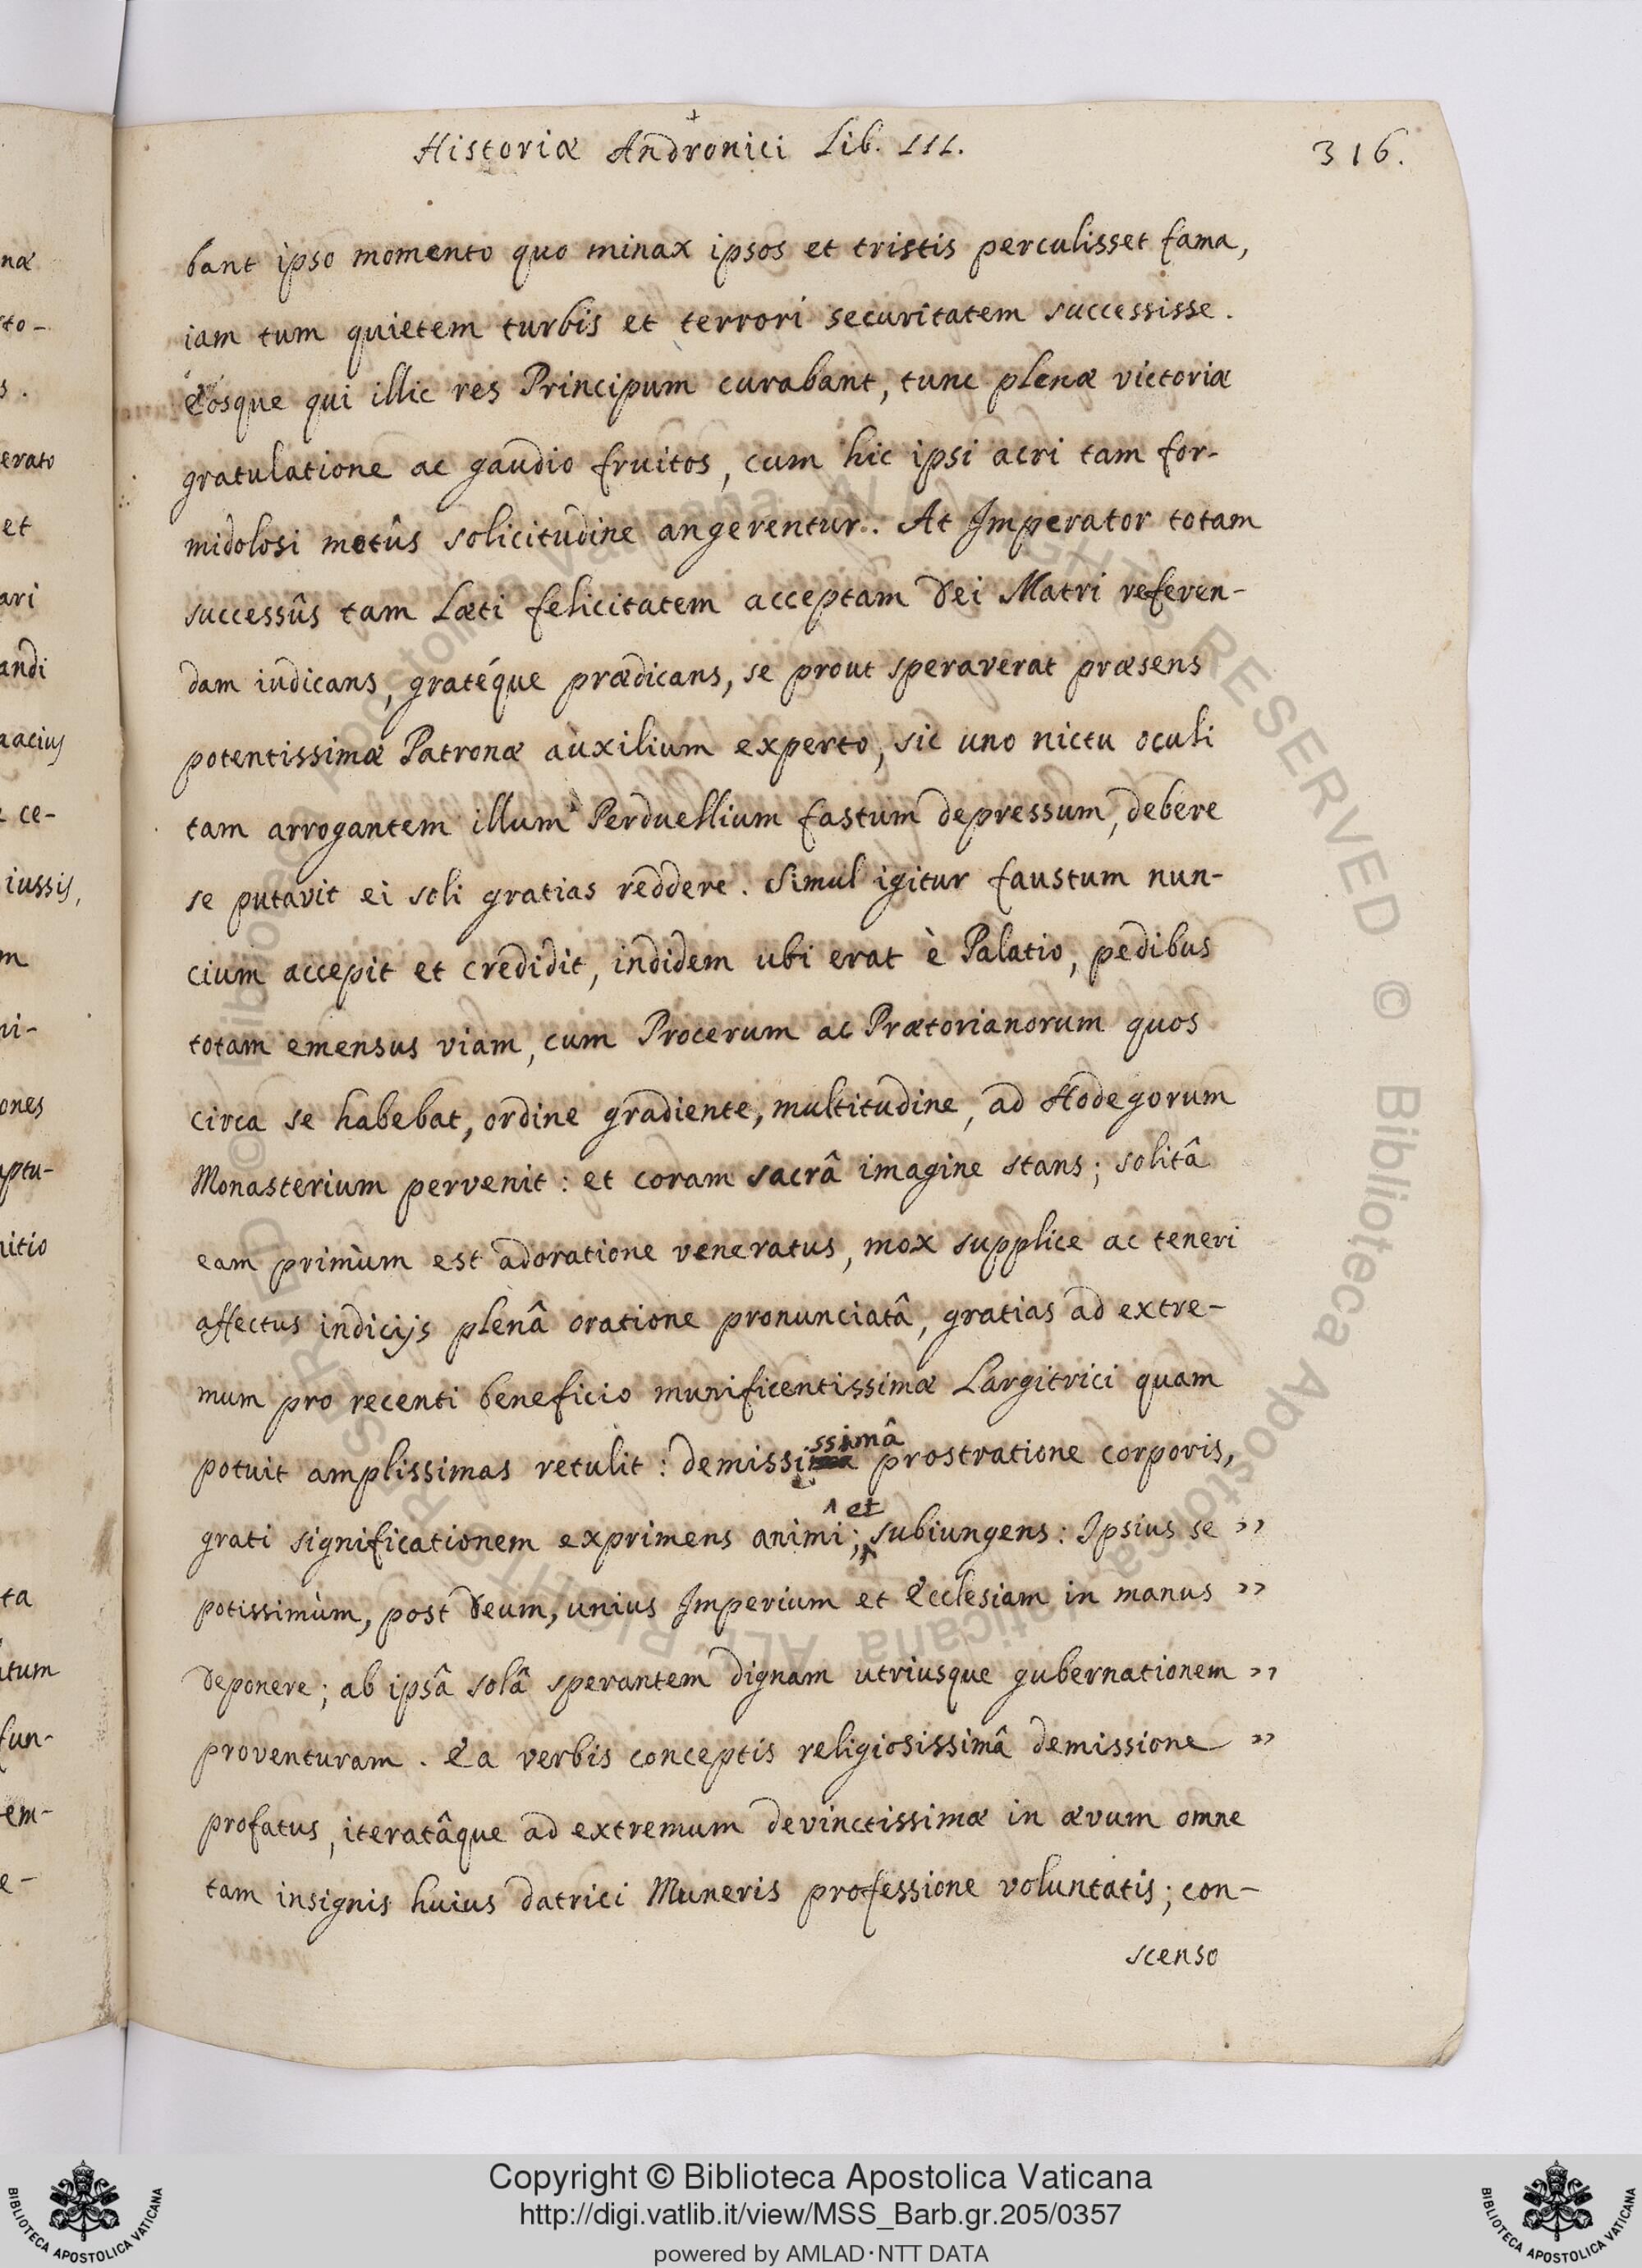 Historiæ Andronici Lib. III.
316.
bant ipso momento quo minax ipsos et tristis perculisset fama,
iam tum quietem turbis et terrori securitatem successisse.
Eosque qui illic res Principum curabant, tunc plenæ victoriæ
gratulatione ac gaudio fruitos, cum hic ipsi acri tam for-
midolosi motûs solicitudine angerentur. At Imperator totam
successûs tam Læti felicitatem acceptam Dei Matri referen-
dam iudicans, gratéque prædicans, se prout speraverat præsens
potentissimæ Patronæ auxilium experto, sic uno nictu oculi
tam arrogantem illum Perduellium fastum depressum, debere
se putavit ei soli gratias reddere. Simul igitur faustum nun-
cium accepit et credidit, indidem ubi erat è Palatio, pedibus
totam emensus viam, cum Procerum ac Prætorianorum quos
circa se habebat, ordine gradiente, multitudine, ad Hodegorum
Monasterium pervenit: et coram sacrâ imagine stans; solitâ
eam primùm est adoratione veneratus, mox supplice ac teneri
affectus indicijs plenâ oratione pronunciatâ, gratias ad extre-
mum pro recenti beneficio munificentissimæ Largitrici quam
potuit amplissimas retulit: demississimâ prostratione corporis,
grati significationem exprimens animi; et subiungens: Ipsius se »
potissimùm, post Deum, unius Imperium et Ecclesiam in manus »
deponere; ab ipsâ solâ sperantem dignam utriusque gubernationem »
proventuram. Ea verbis conceptis religiosissimâ demissione »
profatus, iteratâque ad extremum devinctissimæ in ævum omne
tam insignis huius datrici Muneris professione voluntatis; con-
scenso
næ
sto-
s.
erato
et
ari
andi
acius
ce-
iussis,
m
ni-
ones
ptu-
itio
ta
tum
fun-
em-
e-
Copyright © Biblioteca Apostolica Vaticana
http://digi.vatlib.it/view/MSS_Barb.gr.205/0357
powered by AMLAD·NTT DATA
BIBLIOTECA APOSTOLICA VATICANA
BIBLIOTECA APOSTOLICA VATICANA
© Biblioteca Apostolica Vaticana ALL RIGHTS RESERVED